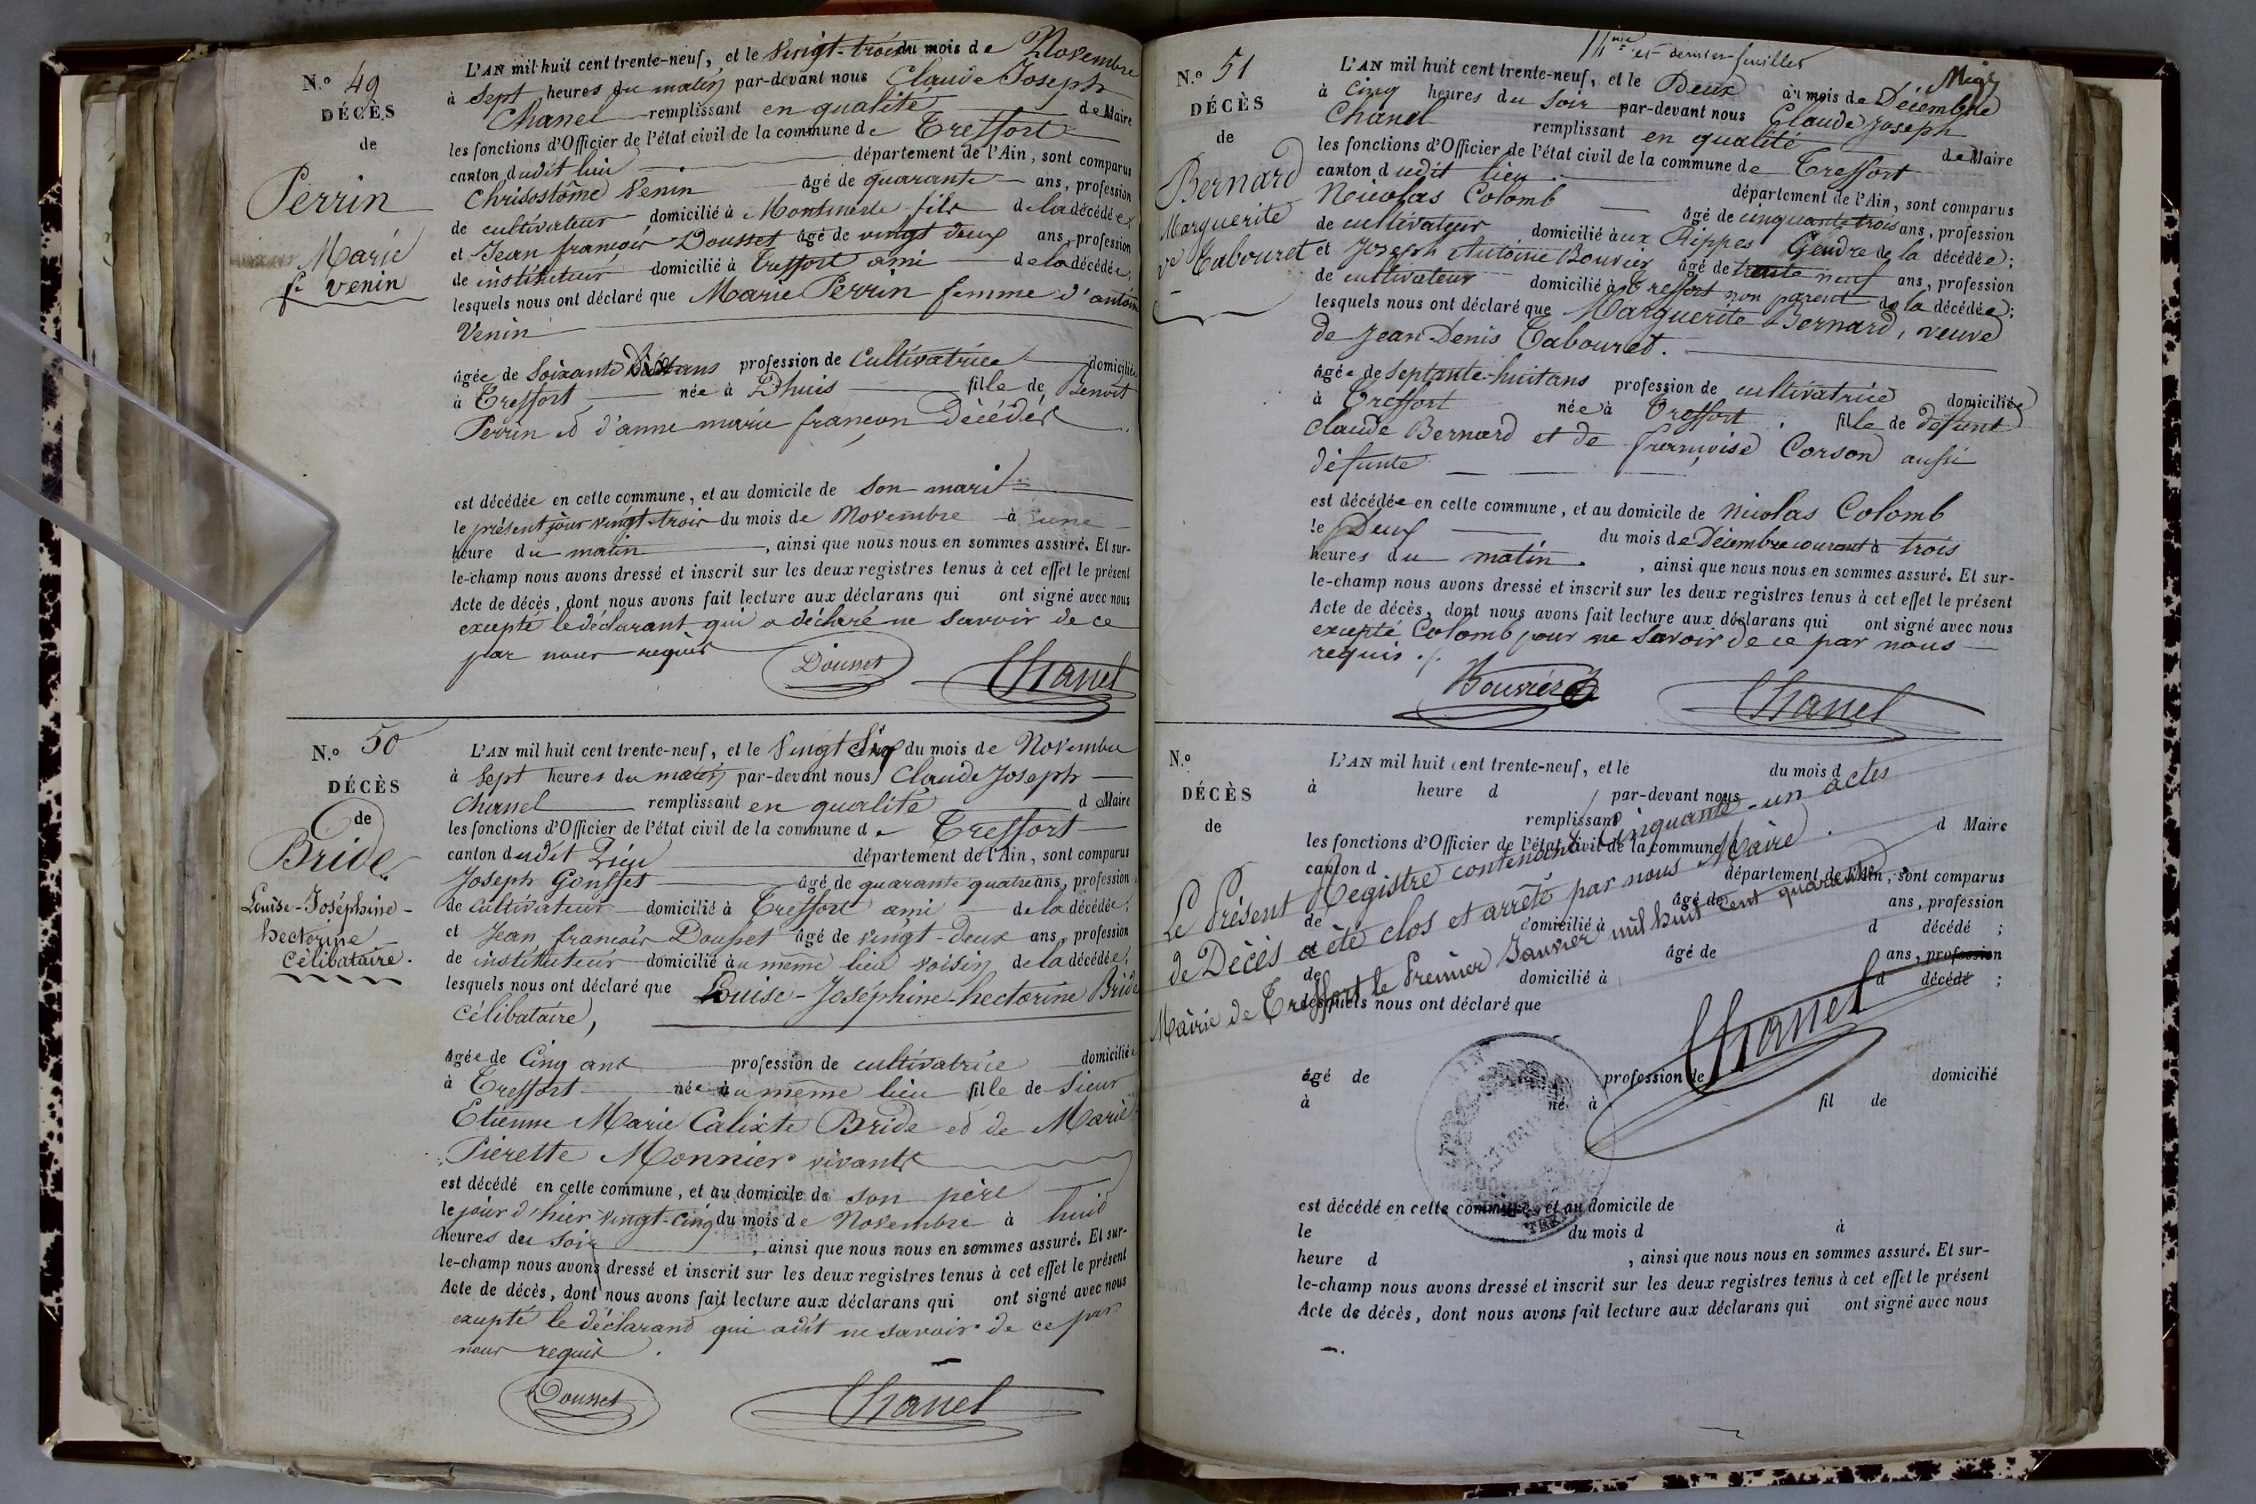 N.º 49
DÉCÈS
de
Perrin
Marie
fe Venin
L'AN mil huit cent trente-neuf, et le vingt-trois du mois de Novembre
à sept heures du matin par-devant nous Claude Joseph
Chanel remplissant en qualité de Maire
les fonctions d'Officier de l'état civil de la commune de Treffort
canton dudit lieu département de l'Ain, sont comparus
Chrisostôme Venin âgé de quarante ans, profession
de cultivateur domicilié à fils de la décédée
et Jean françois Dousset âgé de vingt deux ans, profession
de instituteur domicilié à Treffort ami de la décédée;
lesquels nous ont déclaré que Marie Perrin femme d'antoine
Venin
âgée de soixante dix ans profession de Cultivatrice domiciliée
à Treffort née à Dhuis fille de Benoit
Perrin et d'anne marie françon Décédés
est décédée en cette commune, et au domicile de son mari
le présent jour vingt-trois du mois de Novembre à une
heure du matin, ainsi que nous nous en sommes assuré. Et sur-
le-champ nous avons dressé et inscrit sur les deux registres tenus à cet effet le présent
Acte de décès, dont nous avons fait lecture aux déclarans qui ont signé avec nous
excepté le déclarant qui a déclaré ne savoir de ce
par nous requis
Dousset Chanel
N.º 50
DÉCÈS
de
Bride
Louise-Joséphine-
hectorine
Célibataire.
L'AN mil huit cent trente-neuf, et le vingt six du mois de Novembre
à sept heures du matin par-devant nous Claude Joseph
Chanel remplissant en qualité d Maire
les fonctions d'Officier de l'état civil de la commune de Treffort
canton dudit Lieu département de l'Ain, sont comparus
Joseph Gonsset âgé de quarante quatre ans, profession
de Cultivateur domicilié à Treffort ami de la décédée;
et Jean françois Dousset âgé de vingt-deux ans, profession
de instituteur domicilié au même lieu voisin de la décédée;
lesquels nous ont déclaré que Louise-Joséphine-hectorine Bride
Célibataire,
âgée de Cinq ans profession de cultivatrice domiciliée
à Treffort née au même lieu fille de sieur
Etienne Marie Calixte Bride et de Marie
Pierette Monnier vivants
est décédé en cette commune, et au domicile de son père
le jour d'hier vingt-cinq du mois de Novembre à huit
heures du soir, ainsi que nous nous en sommes assuré. Et sur-
le-champ nous avons dressé et inscrit sur les deux registres tenus à cet effet le présent
Acte de décès, dont nous avons fait lecture aux déclarans qui ont signé avec nous
excepté le déclarand qui a dit ne savoir de ce par
nous requis.
Dousset Chanel
11me et dernier feuillet
N.º 51
DÉCÈS
de
Bernard
Marguerite
ve Tabouret
L'AN mil huit cent trente-neuf, et le Deux au mois de Décembre
à Cinq heures du soir par-devant nous Claude Joseph
Chanel remplissant en qualité de Maire
les fonctions d'Officier de l'état civil de la commune de Treffort
canton dudit lieu département de l'Ain, sont comparus
Nicolas Colomb âgé de cinquante-trois ans, profession
de cultivateur domicilié aux Rippes Gendre de la décédée;
et Joseph Antoine Bouvier âgé de trente neuf ans, profession
de cultivateur domicilié à Treffort non parent de la décédée;
lesquels nous ont déclaré que Marguerite Bernard, veuve
de Jean Denis Tabouret.
âgée de septante-huit ans profession de cultivatrice domiciliée
à Treffort née à Treffort. fille de defunt
Claude Bernard et de françoise Corson aussi
défunte
est décédée en cette commune, et au domicile de Nicolas Colomb
le Deux du mois de Décembre courant à trois
heures du matin., ainsi que nous nous en sommes assuré. Et sur-
le-champ nous avons dressé et inscrit sur les deux registres tenus à cet effet le présent
Acte de décès, dont nous avons fait lecture aux déclarans qui ont signé avec nous
excepté Colomb pour ne savoir de ce par nous
requis./.
Bouvier Chanel
N.º
DÉCÈS
de
L'AN mil huit cent trente-neuf, et le du mois d
à heure d par-devant nous
remplissant d Maire
les fonctions d'Officier de l'état civil de la commune d
canton d département de l'Ain, sont comparus
âgé de ans, profession
de domicilié à d décédé ;
et âgé de ans, profession
de domicilié à d décédé ;
lesquels nous ont déclaré que
Le Présent Registre contenant Cinquante-un actes
de Décès a été clos et arrêté par nous Maire.
Mairie de Treffort le Premier Janvier mil huit cent quarante
Chanel
âgé de profession de domicilié
à né à fil de
est décédé en cette commune, et au domicile de
le du mois d à
heure d , ainsi que nous nous en sommes assuré. Et sur-
le-champ nous avons dressé et inscrit sur les deux registres tenus à cet effet le présent
Acte de décès, dont nous avons fait lecture aux déclarans qui ont signé avec nous